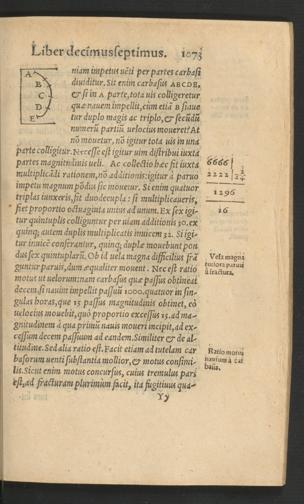 Liber decimusseptimus. 1073
niam impetus uẽti per partes carbasi
diuiditur. Sit enim carbasus ABCDE,
& si in A parte, tota uis colligeretur
qua nauem impellit, cum etiã B suae
tur duplo magis ac triplo, & secundũ
numerũ partiũ uelocius moueret: At
nõ mouetur, nõ igitur tota uis in una
parte colligitur. Necesse est igitur uim distribui iuxta
partes magnitudinis ueli. Ac collectio hæc fit iuxta
multiplicãdi rationem, nõ additionis: igitur à paruo
impetu magnum põdus sic mouetur. Si enim quatuor
triplas iunxeris, fit duodecupla: si multiplicaueris,
fiet proportio octuaginta unius ad unum. Ex sex igi-
tur quintuplis colliguntur per uiam additionis 30. ex
quinq; autem duplis multiplicatis inuicem 32. Si igi-
tur inuicẽ conserantur, quinq; duplæ mouebunt pon
dus sex quintuplarũ. Ob id uela magna difficilius frã
guntur paruis, dum æqualiter mouent. Nec est ratio
motus ut uelorum: nam carbasus quæ passus obtineat
decem, si nauim impellit passuũ 1000. quatuor in sin-
gulas horas, quæ 15 passus magnitudinis obtinet, eò
uelocius mouebit, quò proportio excessus 15. ad ma-
gnitudinem à qua primũ nauis moueri incipit, ad ex-
cessum decem passuum ad eandem. Similiter & de al-
titudine. Sed alia ratio est. Facit etiam ad tutelam car
basorum uenti substantia mollior, & motus consimi-
lis. Sicut enim motus concursus, cuius tremulus pars
est, ad fracturam plurimum facit, ita fugitiuus qua-
Yy
A
B
C
D
E
6666
2222
1296
16
Vela magna
tutiora paruis
à fractura.
Ratio motus
nauium à car
basis.